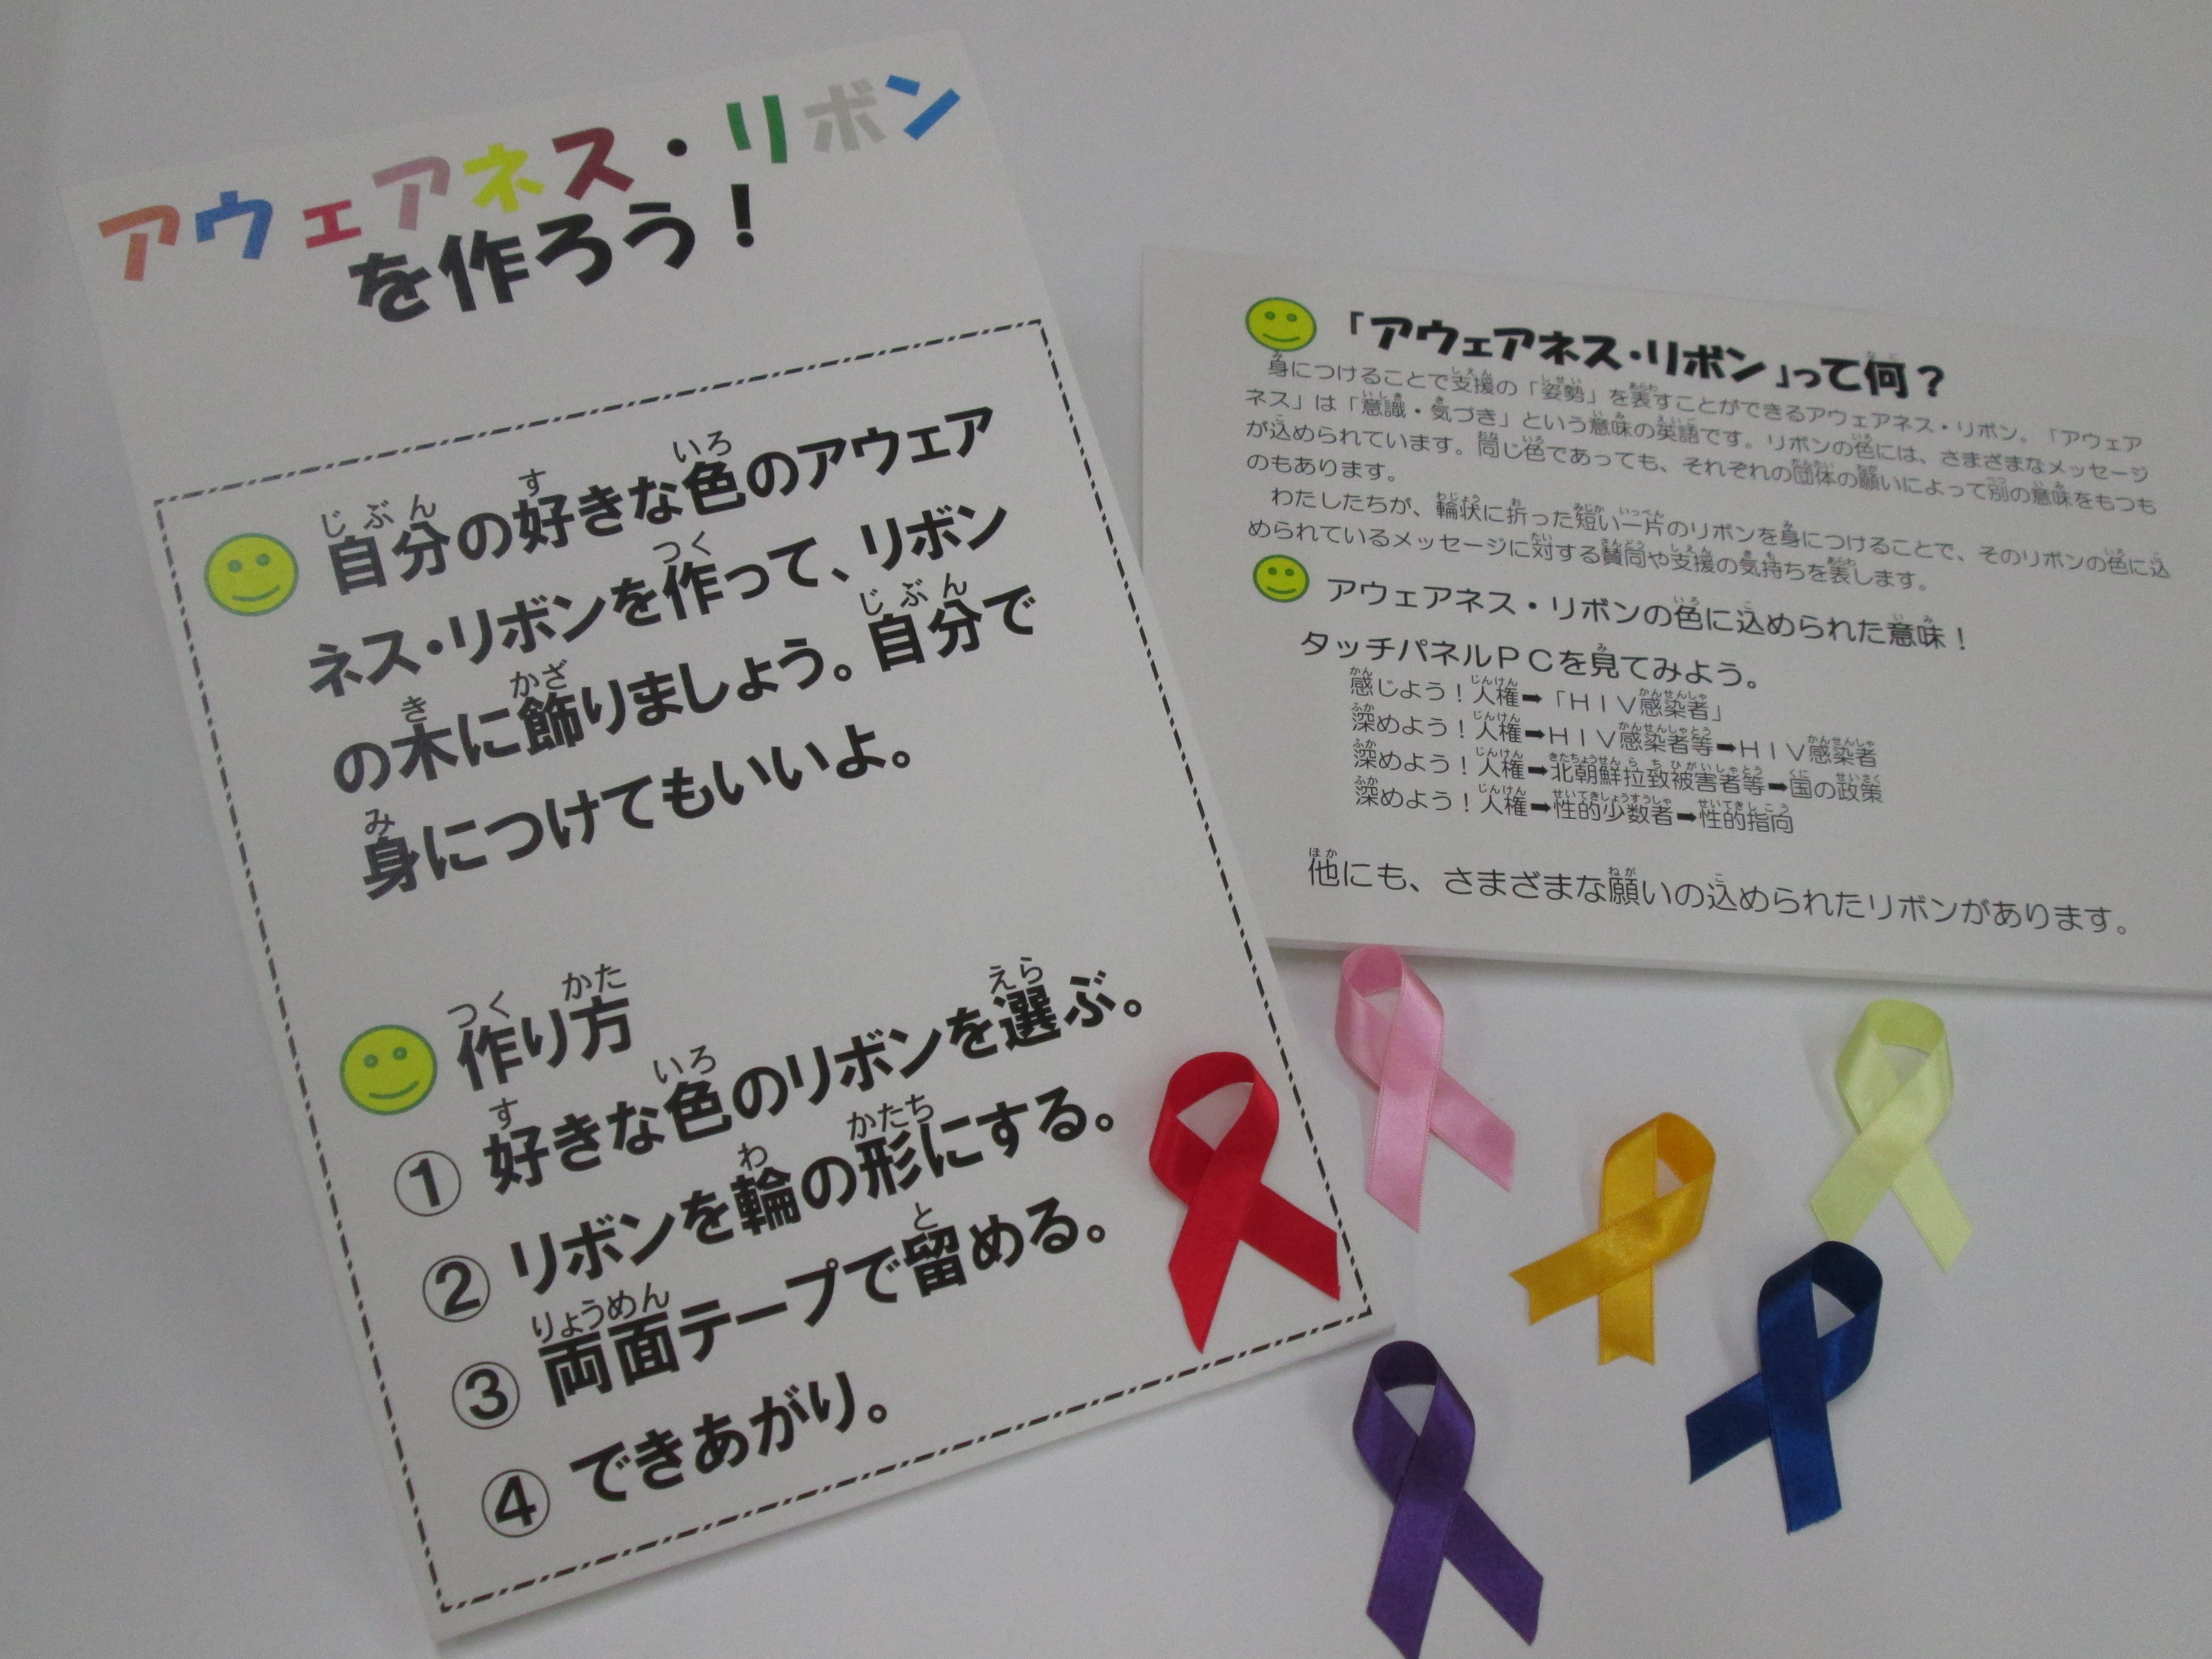 アウェアネス・リボン
を作ろう！
自分の好きな色のアウェア
ネス・リボンを作って、リボン
の木に飾りましょう。自分で
身につけてもいいよ。
作り方
① 好きな色のリボンを選ぶ。
② リボンを輪の形にする。
③ 両面テープで留める。
④ できあがり。
「アウェアネス・リボン」って何？
身につけることで支援の「姿勢」を表すことができるアウェアネス・リボン。「アウェア
ネス」は「意識・気づき」という意味の英語です。リボンの色には、さまざまなメッセージ
が込められています。同じ色であっても、それぞれの団体の願いによって別の意味をもつも
のもあります。
わたしたちが、輪状に折った短い一片のリボンを身につけることで、そのリボンの色に込
められているメッセージに対する賛同や支援の気持ちを表します。
アウェアネス・リボンの色に込められた意味！
タッチパネルＰＣを見てみよう。
感じよう！人権➡「ＨＩＶ感染者」
深めよう！人権➡ＨＩＶ感染者等➡ＨＩＶ感染者
深めよう！人権➡北朝鮮拉致被害者等➡国の政策
深めよう！人権➡性的少数者➡性的指向
他にも、さまざまな願いの込められたリボンがあります。